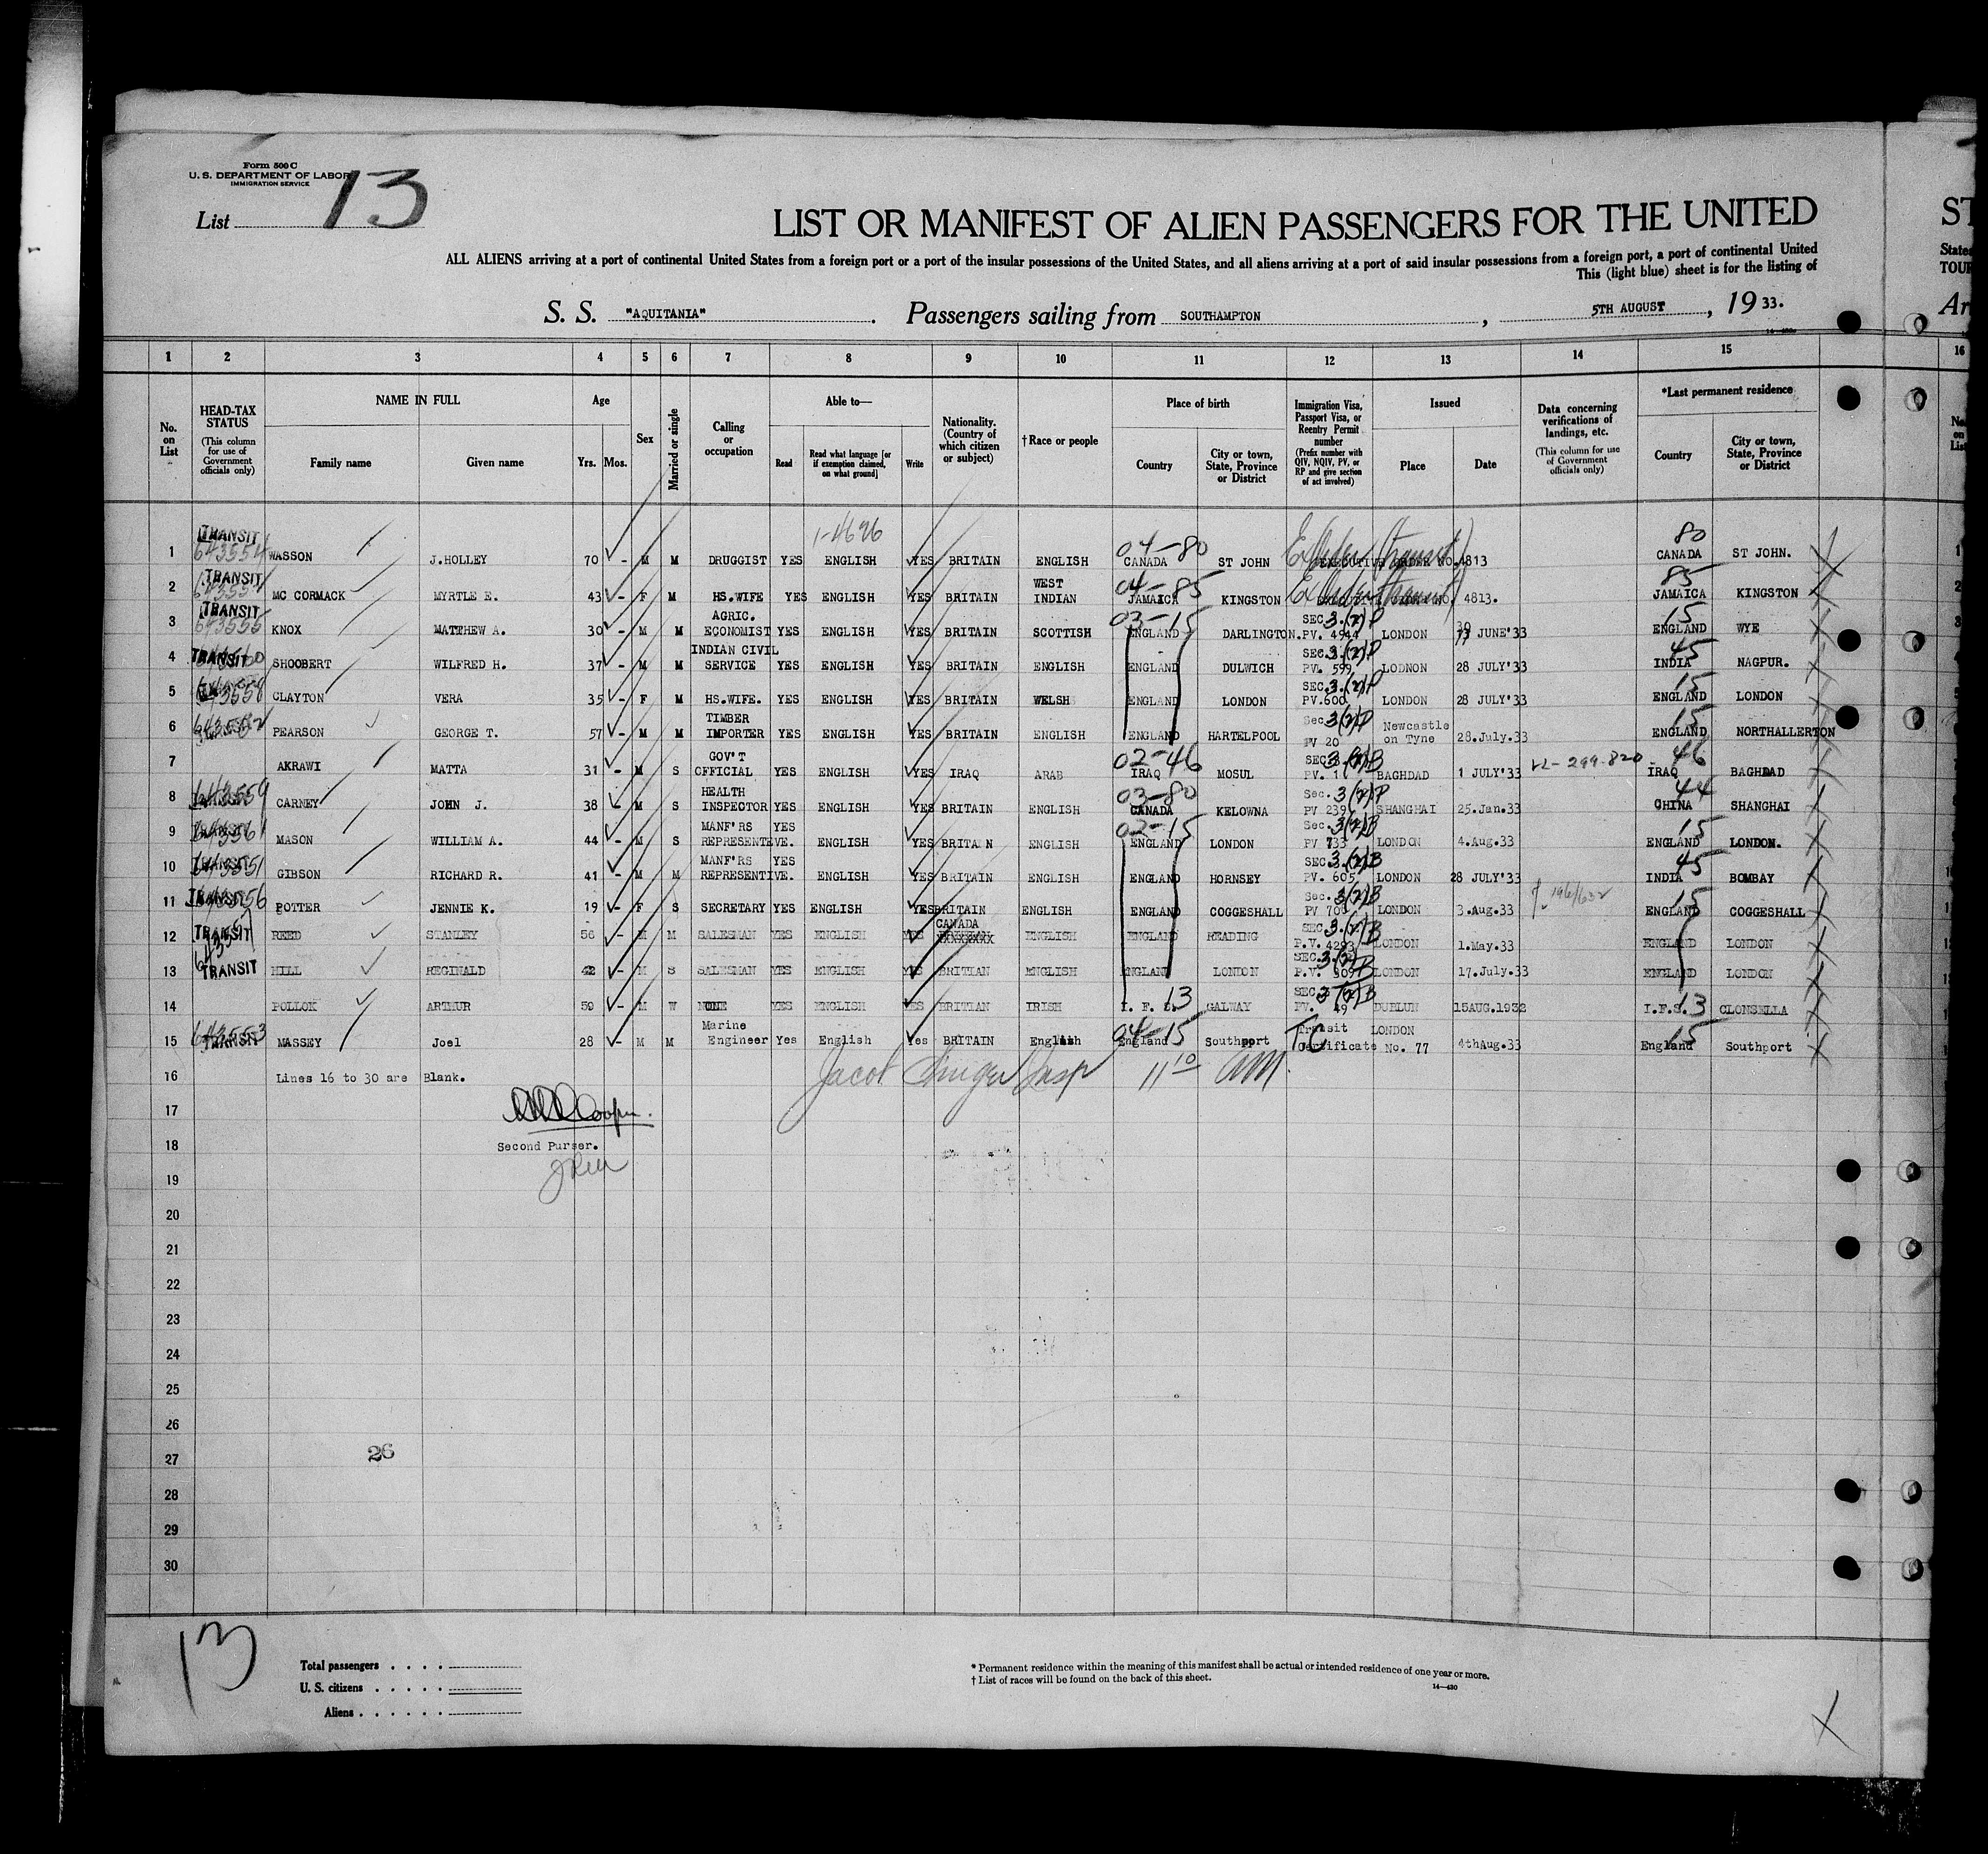 Form 500 C
U. S. DEPARTMENT OF LABOR
IMMIGRATION SERVICE
List 13
LIST OR MANIFEST OF ALIEN PASSENGERS FOR THE UNITED ST
ALL ALIENS arriving at a port of continental United States from a foreign port or a port of the insular possessions of the United States, and all aliens arriving at a port of said insular possessions from a foreign port, a port of continental United States
This (light blue) sheet is for the listing of TOUR
S. S. "AQUITANIA". Passengers sailing from SOUTHAMPTON, 5TH AUGUST, 19 33. Ar
1 2 3 4 5 6 7 8 9 10 11 12 13 14 15 16
No. on List
HEAD-TAX STATUS
(This column for use of Government officials only)
NAME IN FULL
Family name Given name
Age
Yrs. Mos.
Sex
Married or single
Calling or occupation
Able to—
Read
Read what language [or if exemption claimed, on what ground]
Write
Nationality. (Country of which citizen or subject)
† Race or people
Place of birth
Country
City or town, State, Province or District
Immigration Visa, Passport Visa, or Reentry Permit number
(Prefix number with QIV, NQIV, PV, or RP and give section of act involved)
Issued
Place Date
Data concerning verifications of landings, etc.
(This column for use of Government officials only)
*Last permanent residence
Country
City or town, State, Province or District
1-4696
1 TRANSIT 643554 WASSON J.HOLLEY 70 - M M DRUGGIST YES ENGLISH YES BRITAIN ENGLISH 04-80 CANADA ST JOHN EXECUTIVE ORDER NO.4813 80 CANADA ST JOHN.
2 TRANSIT MC CORMACK MYRTLE E. 43 - F M HS.WIFE YES ENGLISH YES BRITAIN WEST INDIAN 04-85 JAMAICA KINGSTON NO. 4813. 85 JAMAICA KINGSTON
3 TRANSIT 643555 KNOX MATTHEW A. 30 - M M AGRIC. ECONOMIST YES ENGLISH YES BRITAIN SCOTTISH 03-15 ENGLAND DARLINGTON. SEC.3.(2)P PV. 4944 LONDON 30 JUNE'33 15 ENGLAND WYE
4 TRANSIT SHOOBERT WILFRED H. 37 - M M INDIAN CIVIL SERVICE YES ENGLISH YES BRITAIN ENGLISH ENGLAND DULWICH SEC.3.(2)P PV. 599 LODNON 28 JULY'33 45 INDIA NAGPUR.
5 643558 CLAYTON VERA 35 - F M HS.WIFE. YES ENGLISH YES BRITAIN WELSH ENGLAND LONDON SEC.3.(2)P PV.600 LONDON 28 JULY'33 15 ENGLAND LONDON
6 643552 PEARSON GEORGE T. 57 - M M TIMBER IMPORTER YES ENGLISH YES BRITAIN ENGLISH ENGLAND HARTELPOOL Sec.3(2)P PV 20 Newcastle on Tyne 28.July.33 15 ENGLAND NORTHALLERTON
7 AKRAWI MATTA 31 - M S GOV'T OFFICIAL YES ENGLISH YES IRAQ ARAB 02-46 IRAQ MOSUL SEC.3.(2)B PV. 1 BAGHDAD 1 JULY'33 VL-299-820 46 IRAQ BAGHDAD
8 643559 CARNEY JOHN J. 38 - M S HEALTH INSPECTOR YES ENGLISH YES BRITAIN ENGLISH 03-80 CANADA KELOWNA Sec. 3(2)P PV 239 SHANGHAI 25.Jan.33 44 CHINA SHANGHAI
9 643561 MASON WILLIAM A. 44 - M S MANF'RS REPRESENTEVE. YES ENGLISH YES BRITAIN ENGLISH 02-15 ENGLAND LONDON Sec.3(2)B PV 733 LONDON 4.Aug.33 15 ENGLAND LONDON.
10 643551 GIBSON RICHARD R. 41 - M M MANF'RS REPRESENTIVE. YES ENGLISH YES BRITAIN ENGLISH ENGLAND HORNSEY SEC.3.(2)B PV. 605 LONDON 28 JULY'33 45 INDIA BOMBAY
11 TRANSIT 643556 POTTER JENNIE K. 19 - F S SECRETARY YES ENGLISH YES BRITAIN ENGLISH ENGLAND COGGESHALL Sec. 3(2)B PV 70 LONDON 3.Aug.33 15 ENGLAND COGGESHALL
12 TRANSIT REED STANLEY 56 - M M SALESMAN YES ENGLISH YES CANADA XXXXXXXX ENGLISH ENGLAND READING SEC.3.(2)B P.V. 4293 LONDON 1.May.33 ENGLAND LONDON
13 TRANSIT HILL REGINALD 42 - M S SALESMAN YES ENGLISH YES BRITIAN ENGLISH ENGLAND LONDON SEC.3.(2)B P.V. 309 LONDON 17.July.33 ENGLAND LONDON
14 POLLOK ARTHUR 59 - M W NONE YES ENGLISH YES BRITIAN IRISH I. F. S. 13 GALWAY SEC 3(2)B PV. 49 DUBLUN 15AUG.1932 I.F.S. 13 CLONSELLA
15 643553 TRANSIT MASSEY Joel 28 - M M Marine Engineer Yes English Yes BRITAIN English 04-15 England Southport TC Transit Certificate LONDON No. 77 4thAug.33 15 England Southport
16 Lines 16 to 30 are Blank. Jacob Insp 11 10 AM.
17
Cooper.
18 Second Purser.
19
20
21
22
23
24
25
26
27 26
28
29
30
13
Total passengers . . . .
U. S. citizens . . . . .
Aliens . . . . . .
* Permanent residence within the meaning of this manifest shall be actual or intended residence of one year or more.
† List of races will be found on the back of this sheet.
14—430